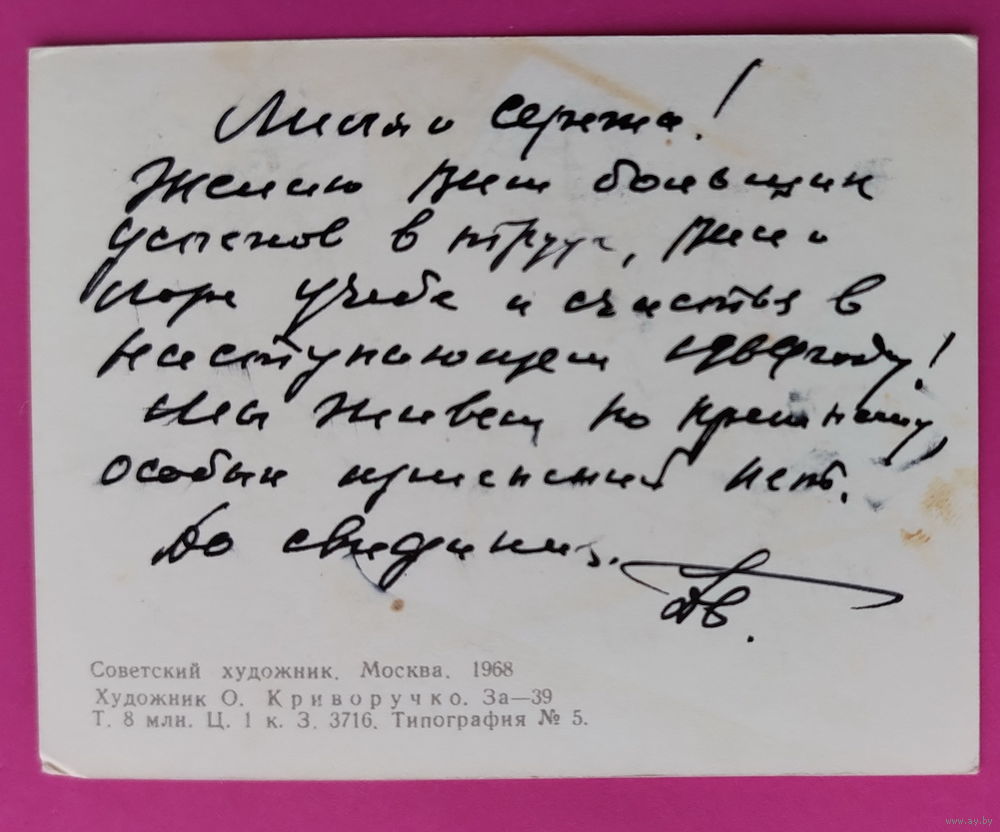 и Сережа!
Желаю Вам больших
успехов в труде, Вале и
Юре учебе и счастья в
наступающем году!
Мы живем по прежнему,
особых изменений нет.
До свидания.
Советский художник. Москва. 1968
Художник О. Криворучко. За—39
Т. 8 млн. Ц. 1 к. З. 3716. Типография № 5.
www.ay.by